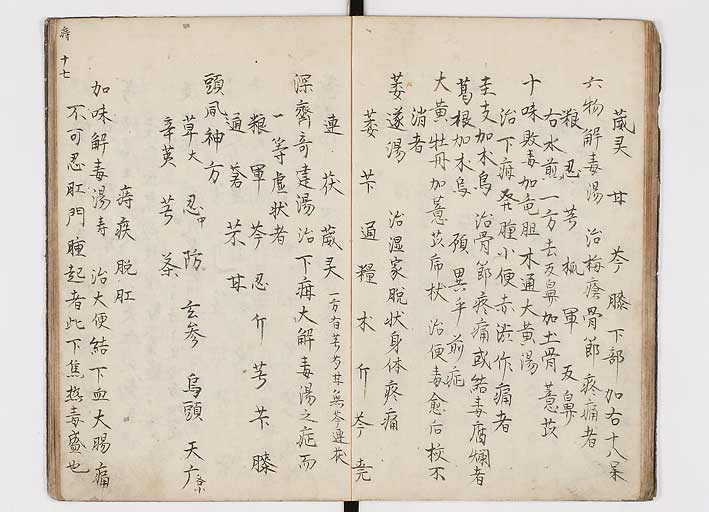 葳灵 甘 芩 膝 下部加右十八呆
六物解毒湯 治梅瘡骨節疼痛者
粮 忍 芎 梹 軍 反鼻
右水煎一方去反鼻加土骨薏苡
十味敗毒加竜胆木通大黄湯
治下疳発腫小便赤渋作痛者
圭支加朮烏 治骨節疼痛或結毒腐爛者
葛根加朮烏 頭異乎前症
大黄牡丹加薏苡 治便毒愈后核不
消者
萎遂湯 治湿家脱状身体疼痛
萎 苄 通 糧 朮 介 芩 尭
連 茯 葳灵 一方有芎芍甘無芩連茯
深齊奇建湯 治下疳大解毒湯之症而
一等虚状者
粮 軍 芩 忍 介 芎 苄 膝
通 蒼 芣 甘
頭風神方
草大 忍中 防 玄参 烏頭 天广
辛英 芎 茶
痔疾 脱肛
加味解毒湯寿 治大便結下血大腸痛
不可忍肛門腫起者此下焦熱毒盛也
痔 十七